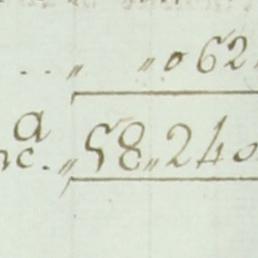 ... „ „ 062
a
nc. „ 58„240